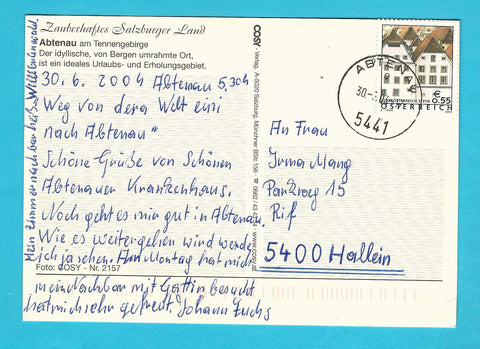 Zauberhaftes Salzburger Land
Abtenau am Tennengebirge
Der idyllische, von Bergen umrahmte Ort,
ist ein ideales Urlaubs- und Erholungsgebiet.
30. 6. 2004 Abtenau 5,30h
Weg von dera Welt eini
nach Abtenau"
Schöne Grüße von Schönen
Abtenauer Krankenhaus.
Noch geht es mir gut in Abtenau,
Wie es weitergehen wird werde
ich ja sehen. Am Montag hat mich
mein Nachbar mit Gattin besucht
hat mich sehr gefreut. Johann Fuchs
Foto: COSY - Nr. 2157
Mein Zimmernachbar heiß
COSY Verlag, A-5020 Salzburg, Münchner BStr. 156
www.cosy.at
ABTENAU
5441
€ 0.55
ÖSTERREICH
An Frau
Irma Mang
Panzweg 15
Rif
5400 Hallein